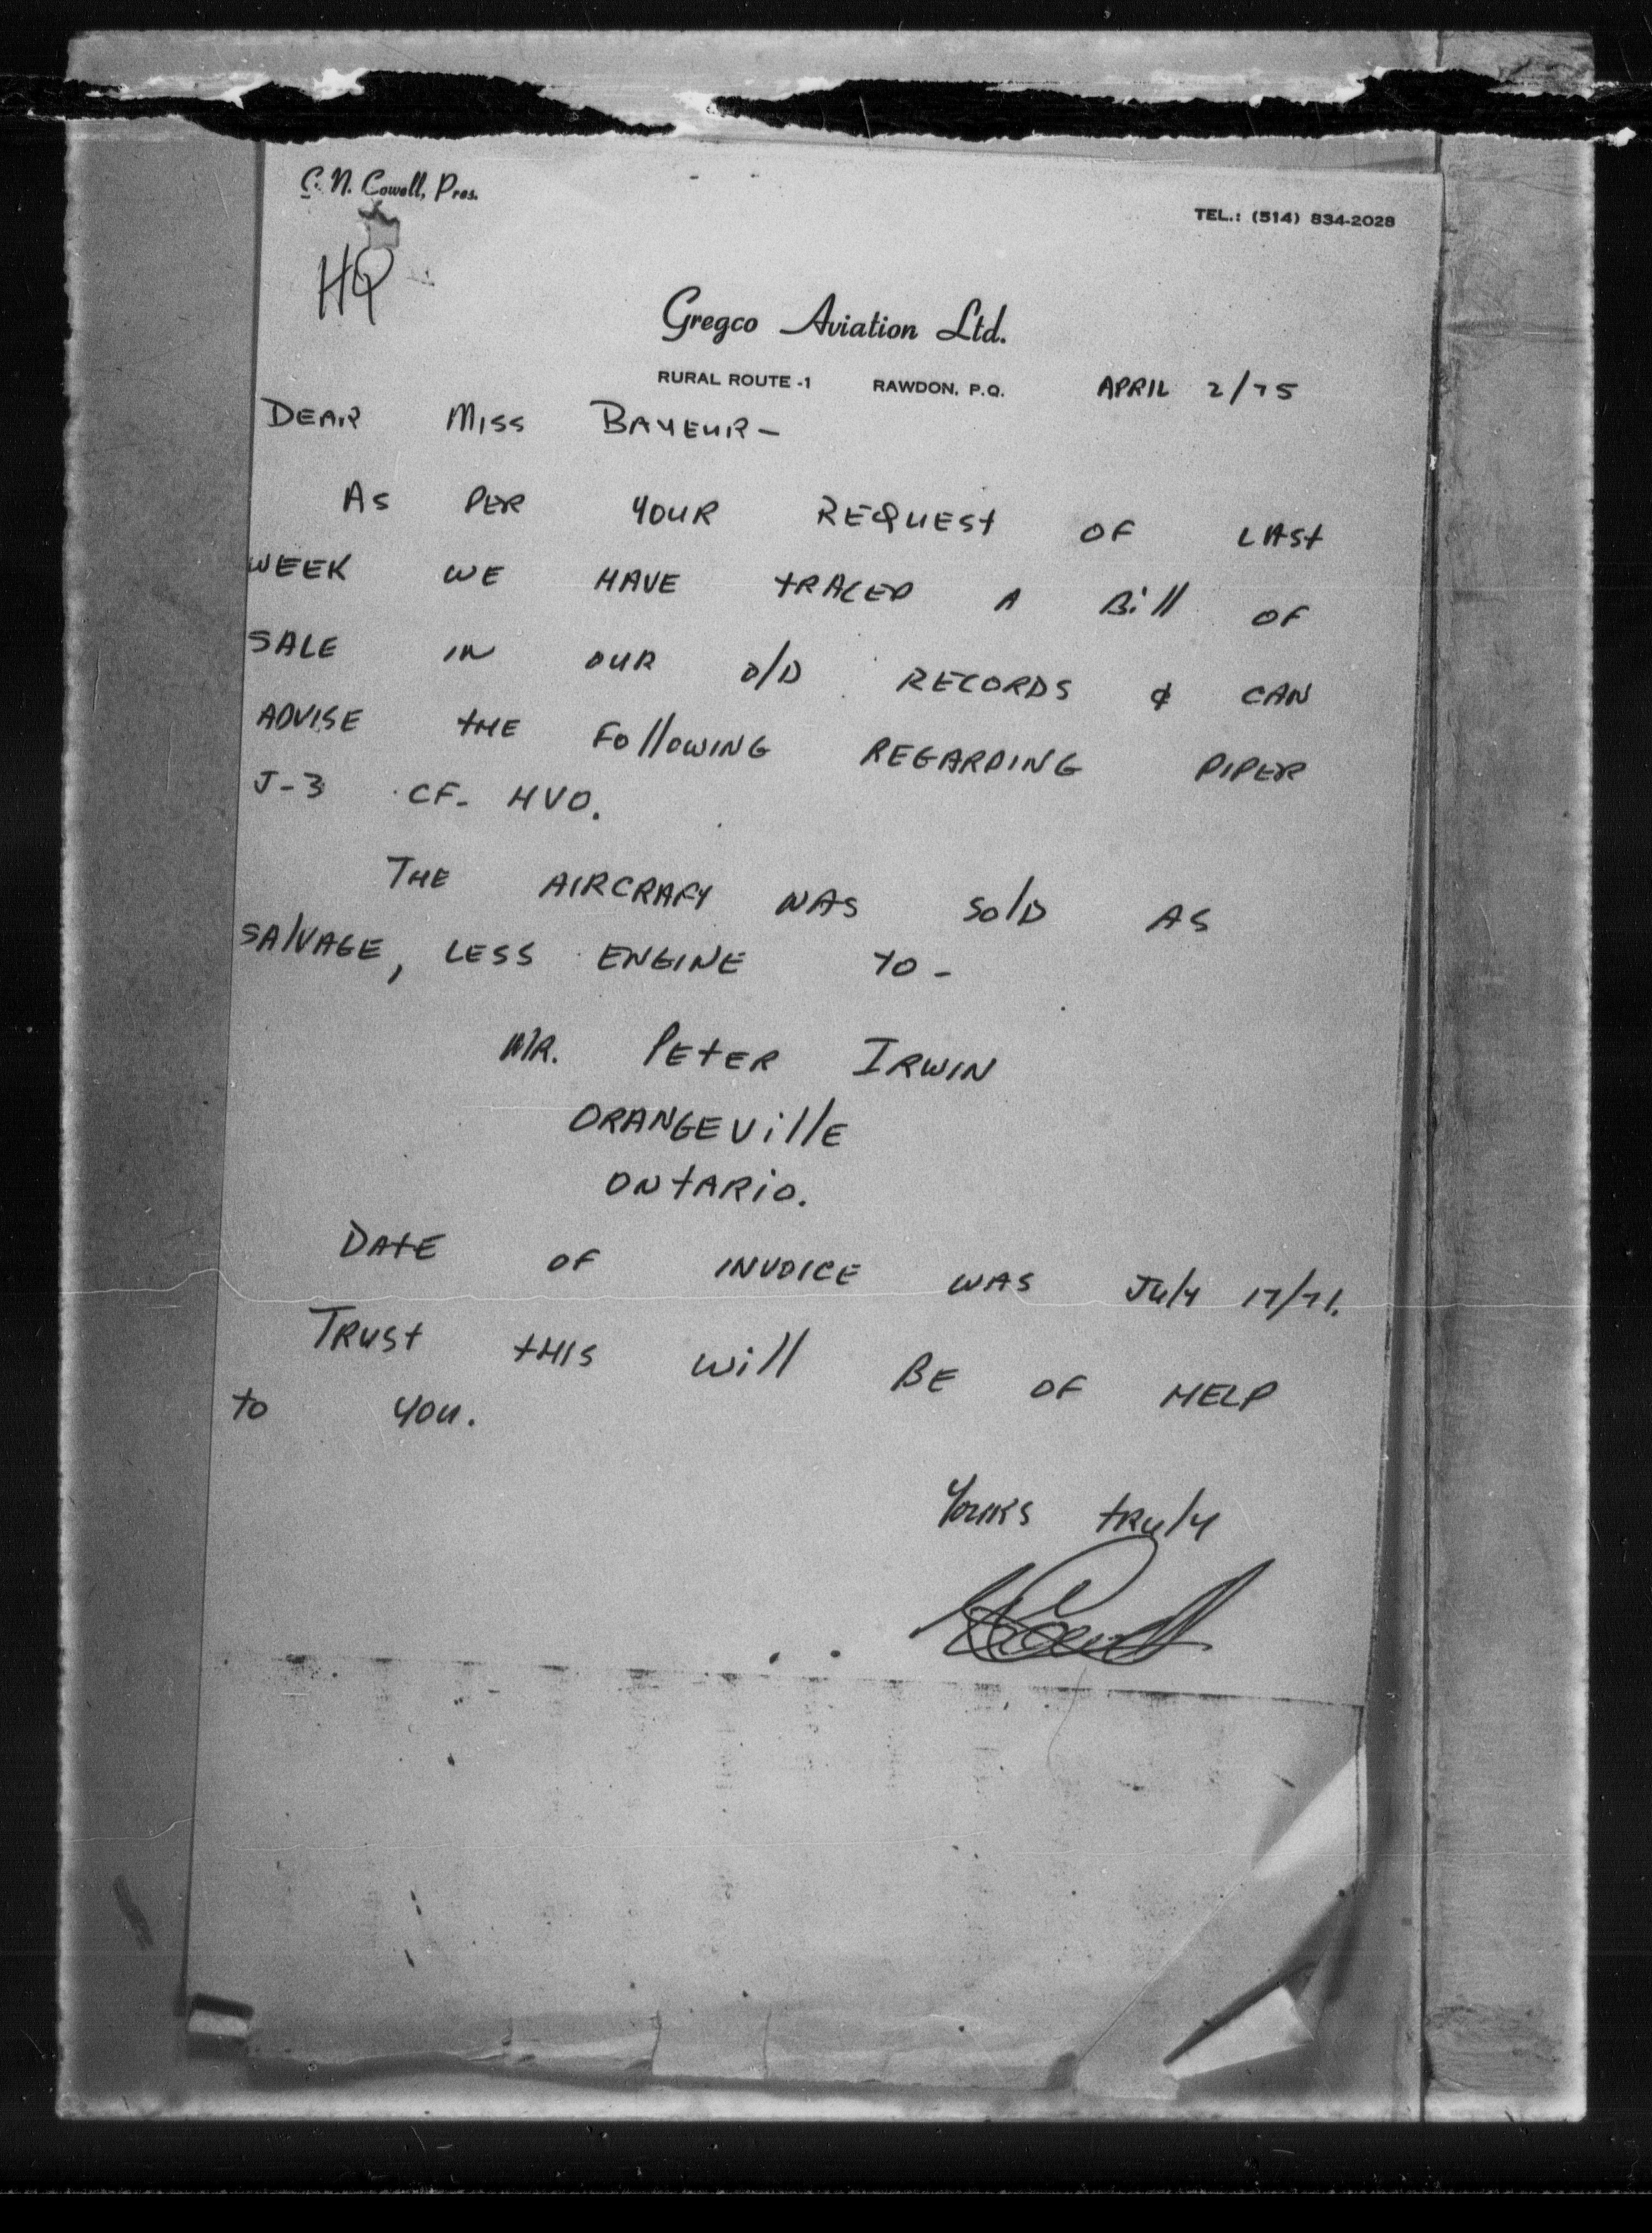 C. N. Cowell, Pres.
TEL.: (514) 834-2028
HQ
Gregco Aviation Ltd.
RURAL ROUTE -1 RAWDON, P.Q. APRIL 2/75
DEAR MISS BAYEUR-
AS PER YOUR REQUEST OF LAST
WEEK WE HAVE TRACED A Bill OF
SALE IN OUR O/D RECORDS & CAN
ADVISE THE FOllOWING REGARDING PIPER
J-3 CF- HVO.
THE AIRCRAFT WAS SOlD AS
SAlVAGE, LESS ENGINE TO-
MR. PETER IRWIN
ORANGEVillE
ONTARiO.
DATE OF INVOICE WAS JUlY 17/71.
TRUST THIS Will BE OF HELP
TO YOU.
YOURS TRUlY